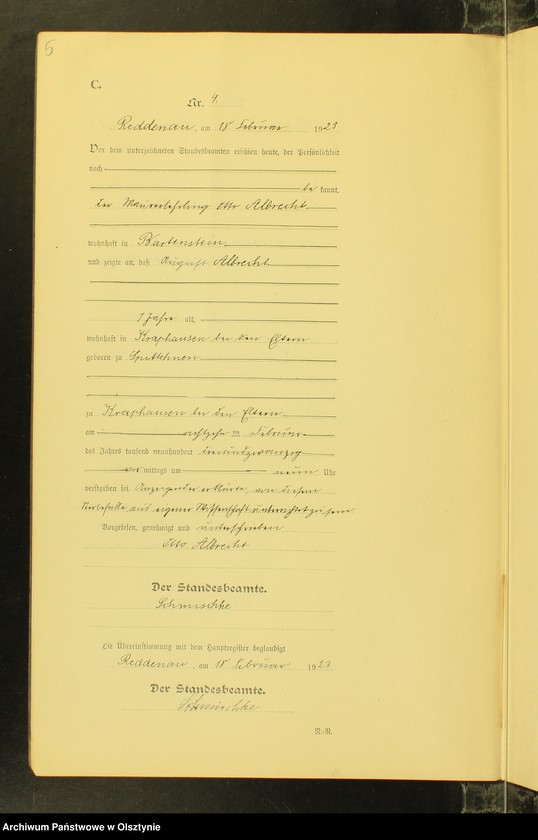 5
C.
Nr. 4.
Reddenau, am 18 Februar 1923
Vor dem unterzeichneten Standesbeamten erschien heute, der Persönlichkeit
nach
be kannt,
der Maurerlehrling Otto Albrecht
wohnhaft in Bartenstein
und zeigte an, daß August Albrecht
7 Jahre alt,
wohnhaft in Kraphausen bei den Eltern
geboren zu
zu Kraphausen bei den Eltern
am achtzehn ten Februar
des Jahres tausend neunhundert dreiundzwanzig
vor mittags um neun Uhr
verstorben sei. Anzeigender erklärte, von diesem
Sterbefalle aus eigener Wissenschaft unterrichtet zu sein
Vorgelesen, genehmigt und unterschrieben
Otto Albrecht
Der Standesbeamte.
Schmischke
Die Übereinstimmung mit dem Hauptregister beglaubigt
Reddenau, am 18 Februar 1923
Der Standesbeamte.
Schmischke
N.-R.
Archiwum Państwowe w Olsztynie